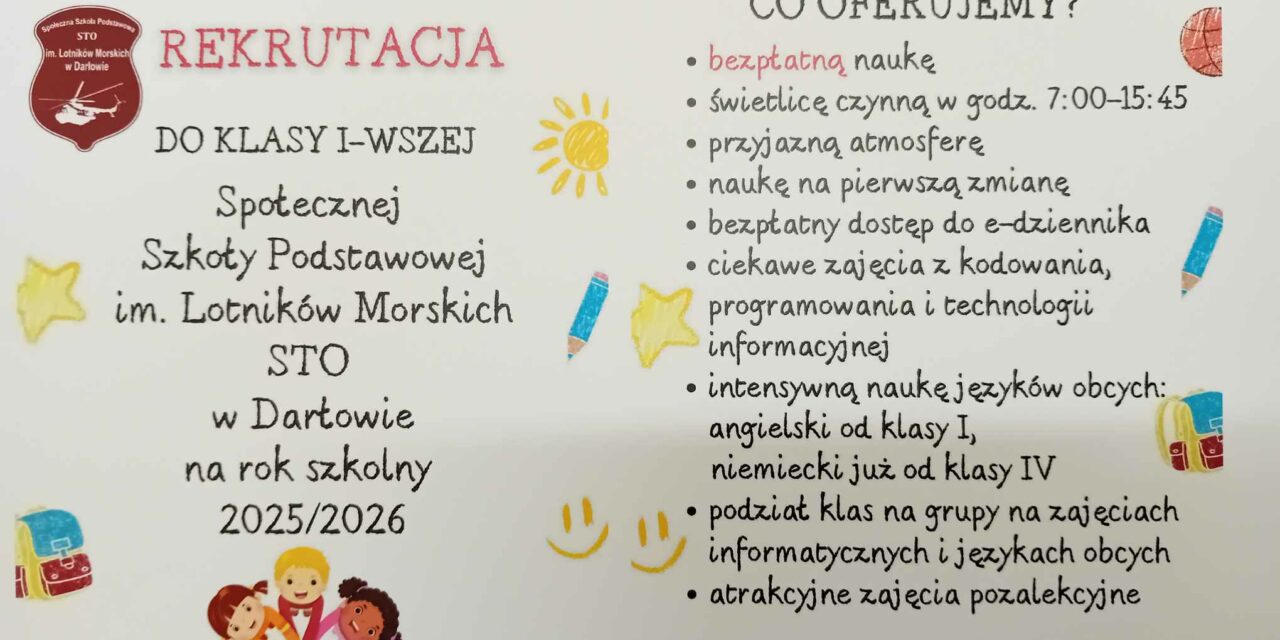 Społeczna Szkoła Podstawowa
STO
im. Lotników Morskich
w Darłowie
REKRUTACJA
DO KLASY I-WSZEJ
Społecznej
Szkoły Podstawowej
im. Lotników Morskich
STO
w Darłowie
na rok szkolny
2025/2026
CO OFERUJEMY?
• bezpłatną naukę
• świetlicę czynną w godz. 7:00-15:45
• przyjazną atmosferę
• naukę na pierwszą zmianę
• bezpłatny dostęp do e-dziennika
• ciekawe zajęcia z kodowania,
programowania i technologii
informacyjnej
• intensywną naukę języków obcych:
angielski od klasy I,
niemiecki już od klasy IV
• podział klas na grupy na zajęciach
informatycznych i językach obcych
• atrakcyjne zajęcia pozalekcyjne